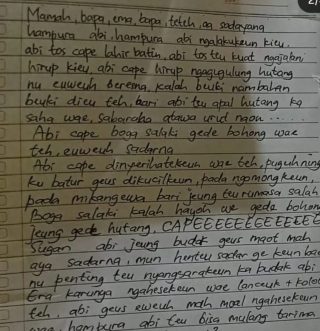 Mamah, bapa, ema, bapa, teteh, aa sadayana
hampura abi, hampura abi ngalakukeun kieu,
abi tos cape lahir batin, abi tos teu kuat ngajalani
hirup kieu, abi cape hirup ngagugulung hutang
nu euweuh beresna, kalah beuki nambahan
beuki dieu teh, bari abi teu apal hutang ka
saha wae, sabaraha atawa urut naon .....
Abi cape boga salaki gede bohong wae
teh, euweuh sadarna
Abi cape dinyerihatekeun wae teh, puguh ning
ku batur geus dikucilkeun, pada ngomongkeun,
pada mikangewa bari jeung teu rumasa salah
Boga salaki kalah hayoh we gede bohong
jeung gede hutang, CAPEEEEEEEEEEEEE
Sugan abi jeung budak geus maot mah
aya sadarna, mun henteu sadar ge keun bae
nu penting teu nyangsarakeun ka budak abi
Era karunya ngahesekeun wae lanceuk + kolot
teh, abi geus euweuh mah moal ngahesekeun
hampura abi teu bisa mulang tarima